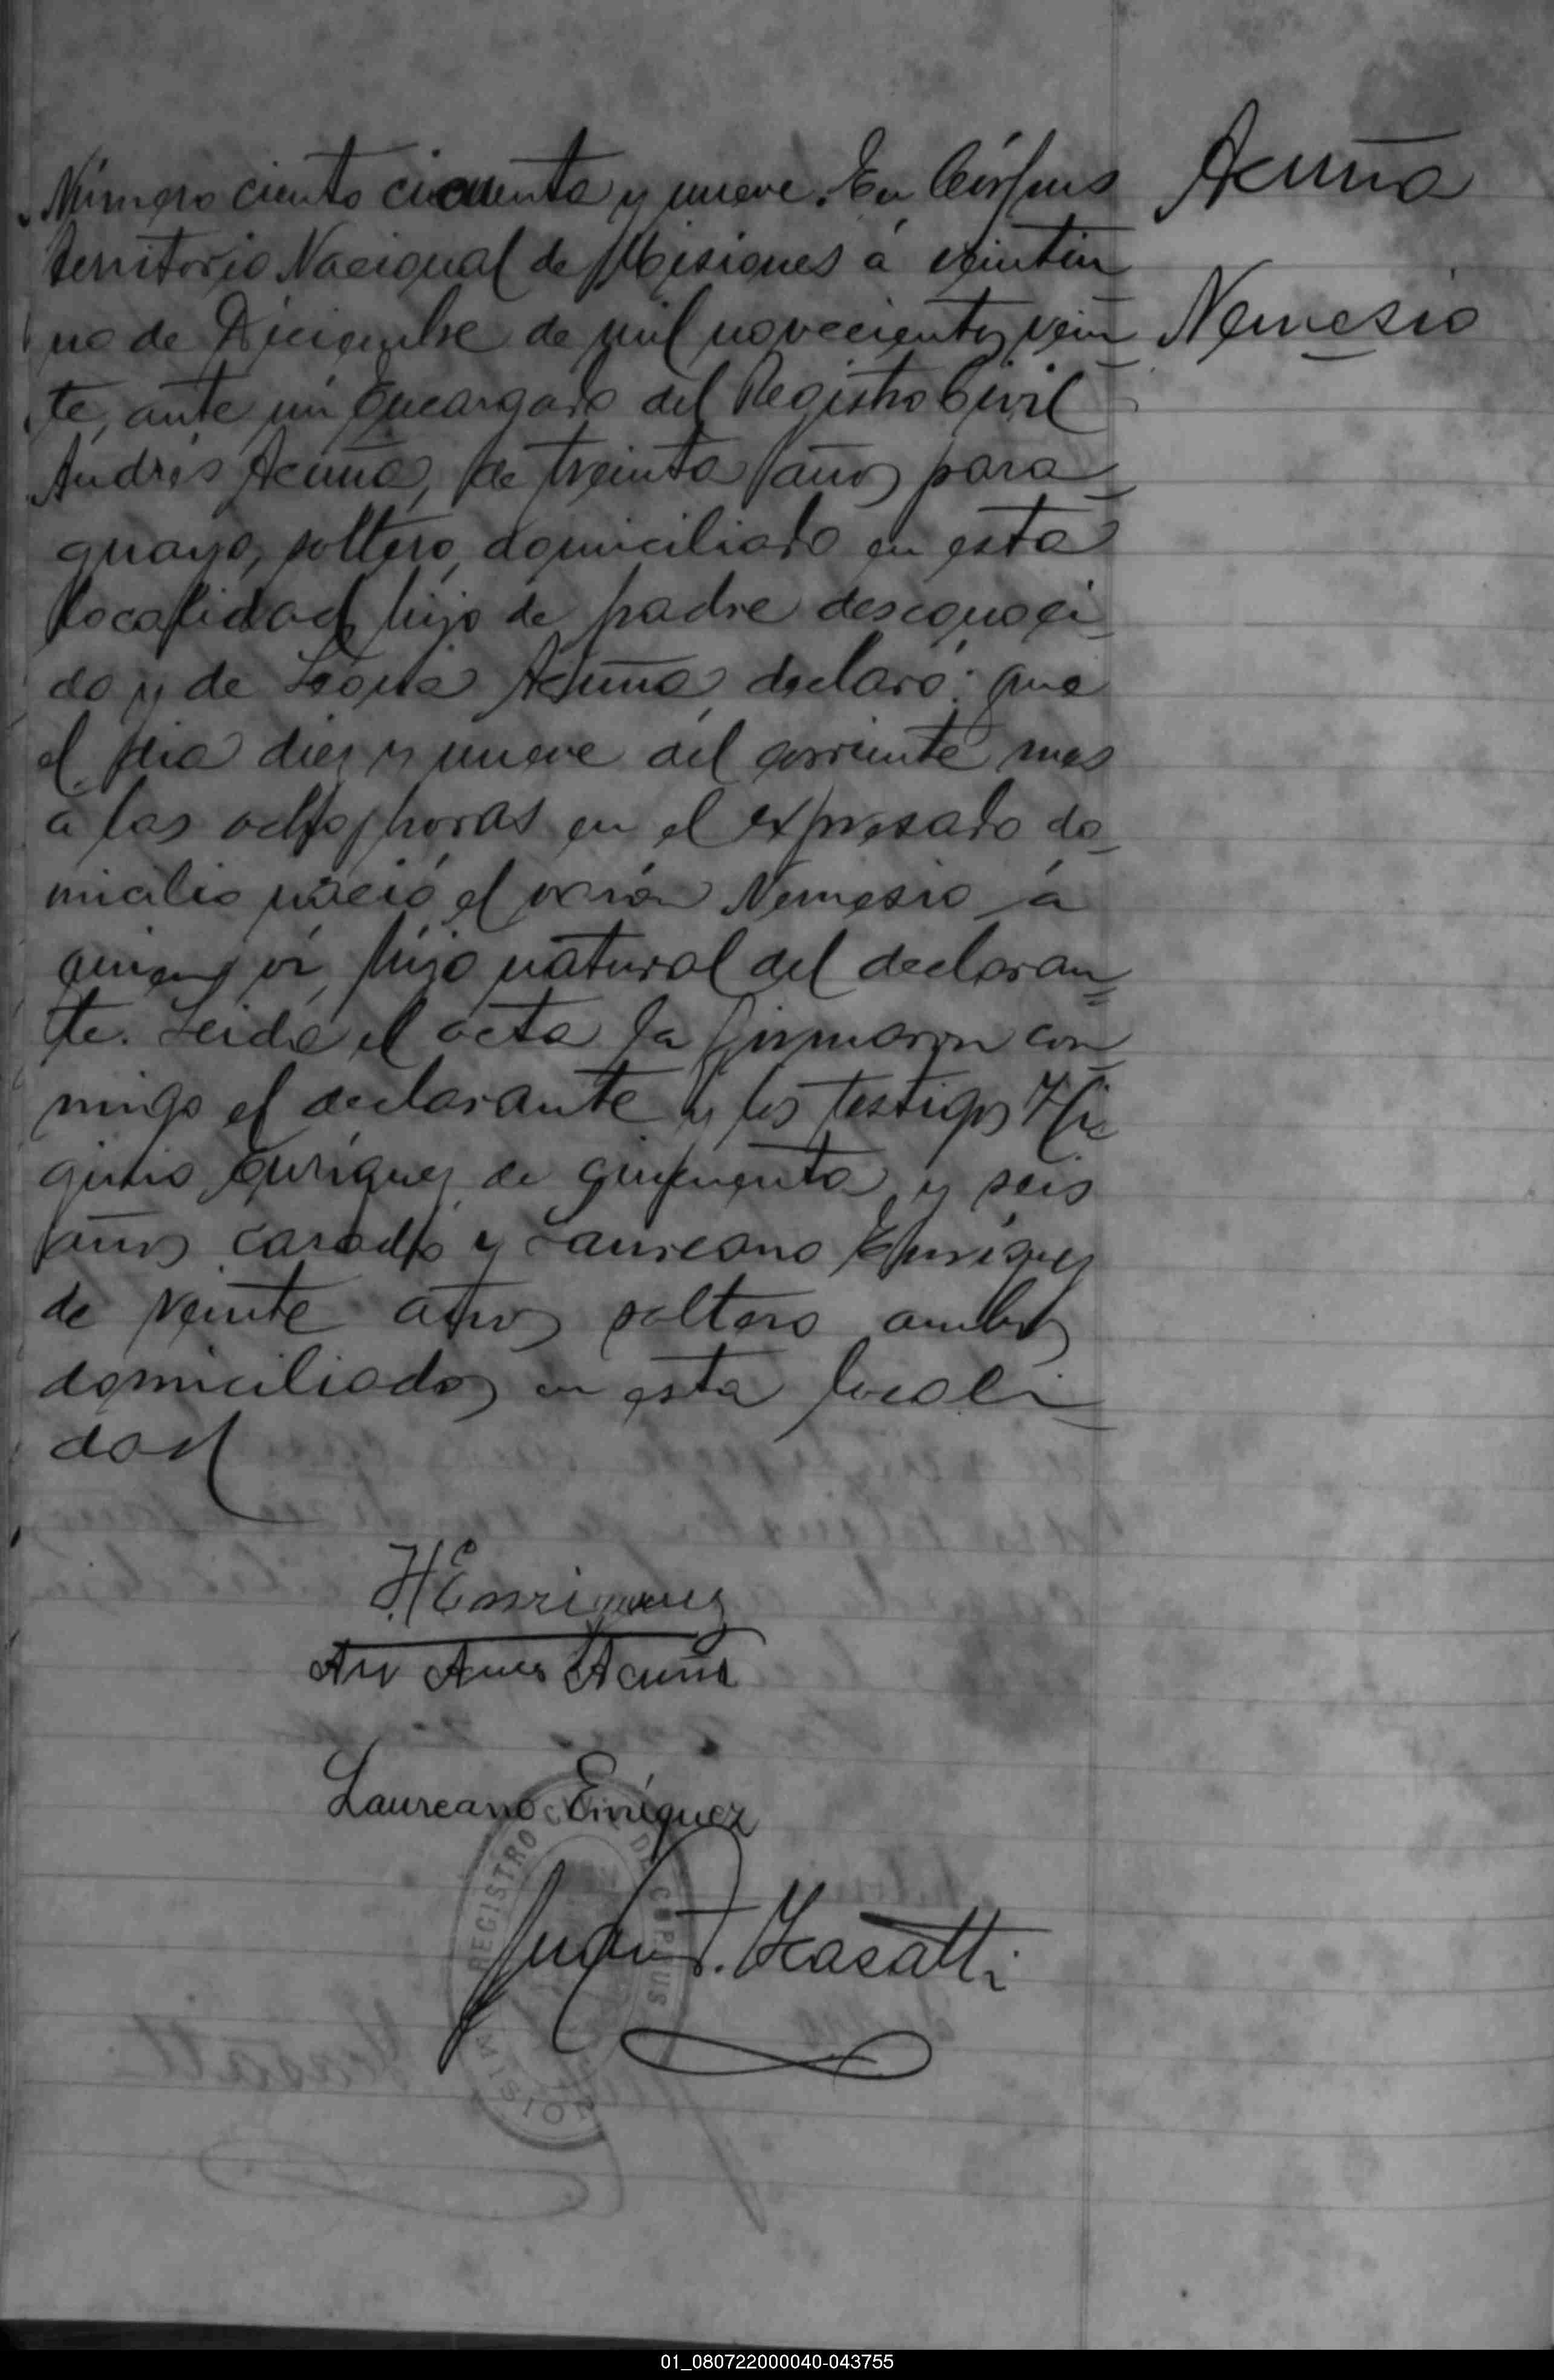 Número ciento cicuenta y nueve. En Córpus
territorio Nacional de Misiones á veintiu
no de Diciembre de mil novecientos vein
te, ante mí Encargado del Registro Civil
Andrés Acuña, de treinta años para
guayo, soltero, domiciliado en esta
localidad hijo de padre desconoci
do y de Acuña, declaró: que
el dia diez y nueve del corriente mes
á las ocho horas en el expresado do
micilio nació el varón Nemesio á
quien ví, hijo natural del declaran
te. Leida el acta la firmaron con
migo el declarante y los testigos Hi
ginio Enriquez de cincuenta y seis
años casado y Laureano Enriquez
de veinte años soltero ambos
domiciliados en esta locali
dad
Acuña
Nemesio
H. Enriquez
Acuña
Laureano Enríquez
Juan
REGISTRO CIVIL DE CORPUS
MISIONES
01_080722000040-043755